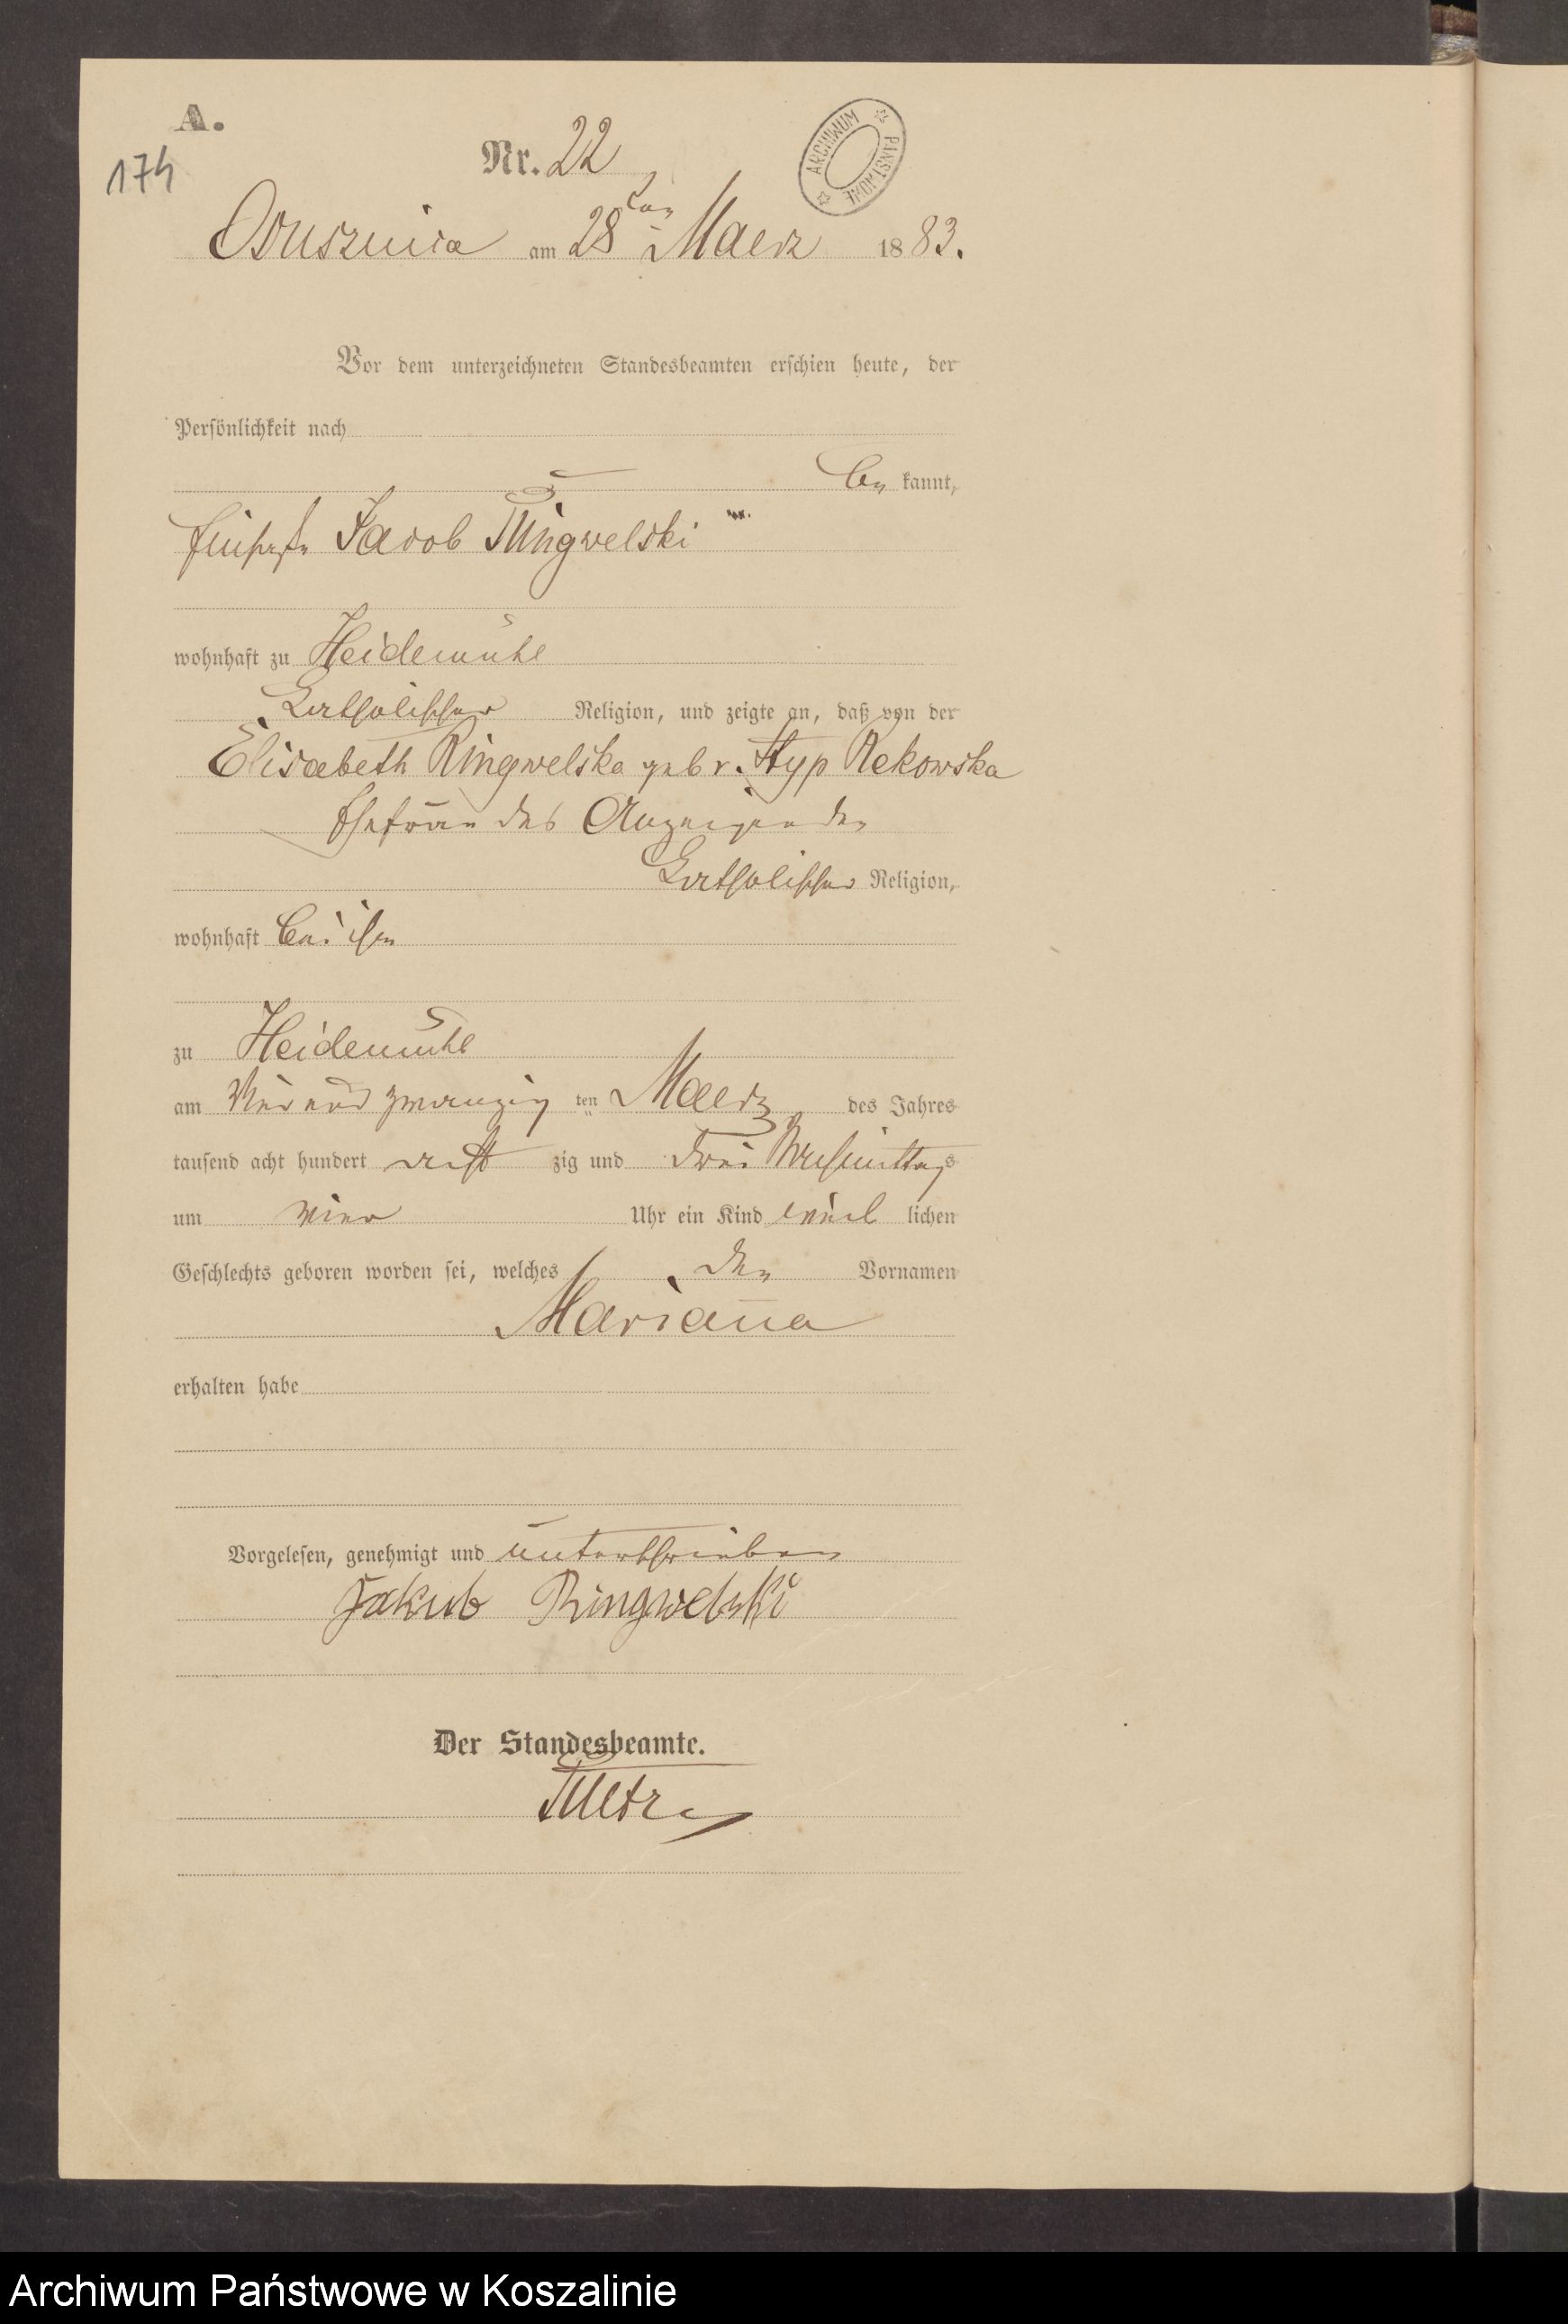 A.
174
Nr. 22
ARCHIWUM PAŃSTWOWE
Ossusznica am 28ten Maerz 1883.
Vor dem unterzeichneten Standesbeamten erschien heute, der
Persönlichkeit nach
be kannt,
Jacob Ringwelski
wohnhaft zu Heidemühl
katholischer Religion, und zeigte an, daß von der
Elisabeth Ringwelska geb v. Styp Rekowska
Ehefrau des Anzeigenden
katholischer Religion,
wohnhaft bei ihm
zu Heidemühl
am vier und zwanzig ten Maerz des Jahres
tausend acht hundert acht zig und drei Nachmittags
um vier Uhr ein Kind weib lichen
Geschlechts geboren worden sei, welches den Vornamen
Marianna
erhalten habe
Vorgelesen, genehmigt und unterschrieben
Jakub Ringwelski
Der Standesbeamte.
Archiwum Państwowe w Koszalinie